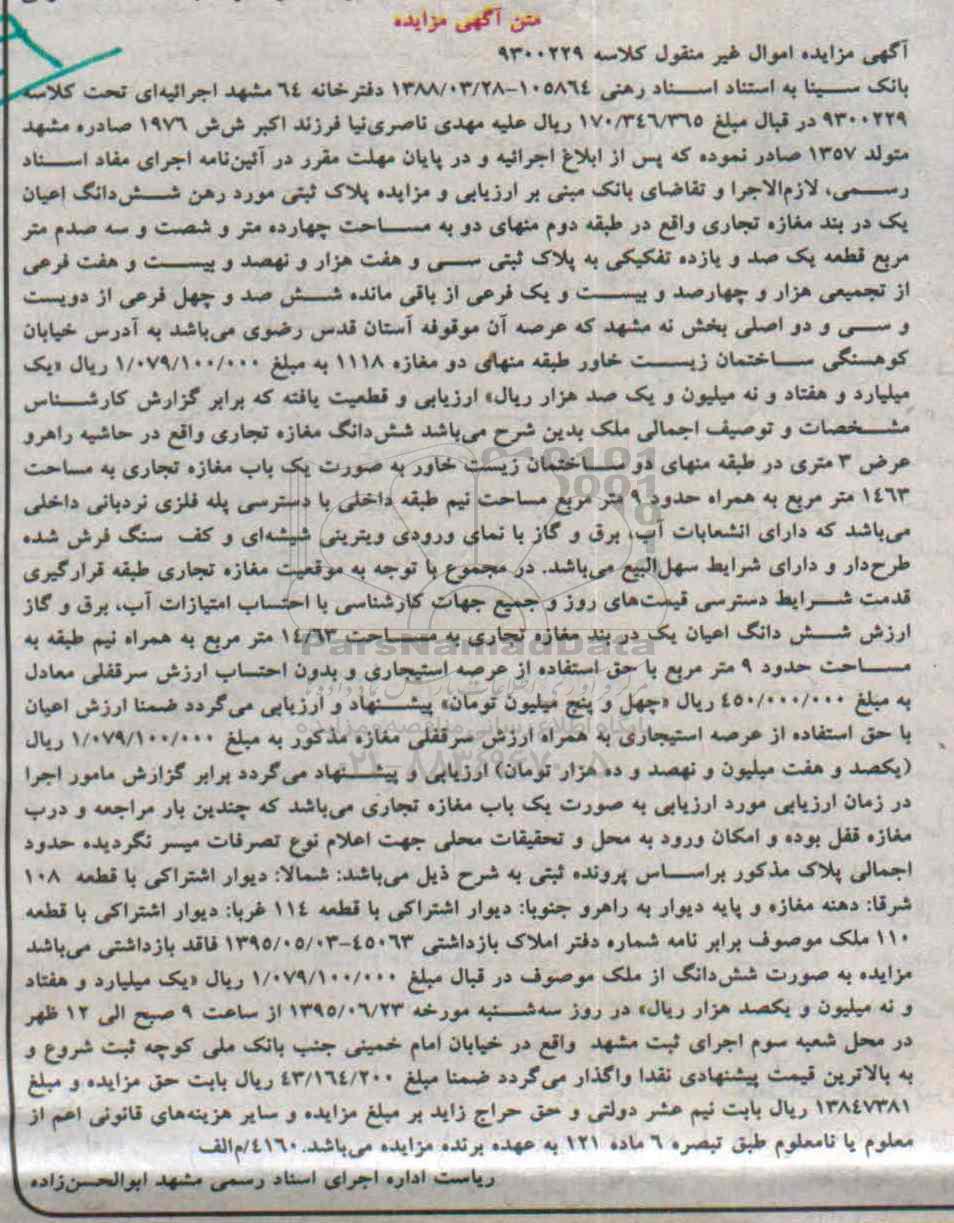 متن آگهی مزایده
آگهی مزایده اموال غیر منقول کلاسه ۹۳۰۰۲۲۹
بانک سینا به استناد اسناد رهنی ۱۰۵۸۶۴-۱۳۸۸/۰۳/۲۸ دفترخانه ۶۴ مشهد اجرائیه‌ای تحت کلاسه
۹۳۰۰۲۲۹ در قبال مبلغ ۱۷۰/۳۴۶/۳۶۵ ریال علیه مهدی ناصری‌نیا فرزند اکبر ش‌ش ۱۹۷۶ صادره مشهد
متولد ۱۳۵۷ صادر نموده که پس از ابلاغ اجرائیه و در پایان مهلت مقرر در آئین‌نامه اجرای مفاد اسناد
رسمی، لازم‌الاجرا و تقاضای بانک مبنی بر ارزیابی و مزایده پلاک ثبتی مورد رهن شش‌دانگ اعیان
یک در بند مغازه تجاری واقع در طبقه دوم منهای دو به مساحت چهارده متر و شصت و سه صدم متر
مربع قطعه یک صد و یازده تفکیکی به پلاک ثبتی سی و هفت هزار و نهصد و بیست و هفت فرعی
از تجمیعی هزار و چهارصد و بیست و یک فرعی از باقی مانده شش صد و چهل فرعی از دویست
و سی و دو اصلی بخش نه مشهد که عرصه آن موقوفه آستان قدس رضوی می‌باشد به آدرس خیابان
کوهسنگی ساختمان زیست خاور طبقه منهای دو مغازه ۱۱۱۸ به مبلغ ۱/۰۷۹/۱۰۰/۰۰۰ ریال «یک
میلیارد و هفتاد و نه میلیون و یک صد هزار ریال» ارزیابی و قطعیت یافته که برابر گزارش کارشناس
مشخصات و توصیف اجمالی ملک بدین شرح می‌باشد شش‌دانگ مغازه تجاری واقع در حاشیه راهرو
عرض ۳ متری در طبقه منهای دو ساختمان زیست خاور به صورت یک باب مغازه تجاری به مساحت
۱۴۶۳ متر مربع به همراه حدود ۹ متر مربع مساحت نیم طبقه داخلی با دسترسی پله فلزی نردبانی داخلی
می‌باشد که دارای انشعابات آب، برق و گاز با نمای ورودی ویترینی شیشه‌ای و کف سنگ فرش شده
طرح‌دار و دارای شرایط سهل‌البیع می‌باشد. در مجموع با توجه به موقعیت مغازه تجاری طبقه قرارگیری
قدمت شرایط دسترسی قیمت‌های روز و جمیع جهات کارشناسی با احتساب امتیازات آب، برق و گاز
ارزش شش دانگ اعیان یک در بند مغازه تجاری به مساحت ۱۴/۶۳ متر مربع به همراه نیم طبقه به
مساحت حدود ۹ متر مربع با حق استفاده از عرصه استیجاری و بدون احتساب ارزش سرقفلی معادل
به مبلغ ۴۵۰/۰۰۰/۰۰۰ ریال «چهل و پنج میلیون تومان» پیشنهاد و ارزیابی می‌گردد ضمنا ارزش اعیان
با حق استفاده از عرصه استیجاری به همراه ارزش سرقفلی مغازه مذکور به مبلغ ۱/۰۷۹/۱۰۰/۰۰۰ ریال
(یکصد و هفت میلیون و نهصد و ده هزار تومان) ارزیابی و پیشنهاد می‌گردد برابر گزارش مامور اجرا
در زمان ارزیابی مورد ارزیابی به صورت یک باب مغازه تجاری می‌باشد که چندین بار مراجعه و درب
مغازه قفل بوده و امکان ورود به محل و تحقیقات محلی جهت اعلام نوع تصرفات میسر نگردیده حدود
اجمالی پلاک مذکور براساس پرونده ثبتی به شرح ذیل می‌باشد: شمالا: دیوار اشتراکی با قطعه ۱۰۸
شرقا: دهنه مغازه و پایه دیوار به راهرو جنوبا: دیوار اشتراکی با قطعه ۱۱۴ غربا: دیوار اشتراکی با قطعه
۱۱۰ ملک موصوف برابر نامه شماره دفتر املاک بازداشتی ۴۵۰۶۳-۱۳۹۵/۰۵/۰۳ فاقد بازداشتی می‌باشد
مزایده به صورت شش‌دانگ از ملک موصوف در قبال مبلغ ۱/۰۷۹/۱۰۰/۰۰۰ ریال «یک میلیارد و هفتاد
و نه میلیون و یکصد هزار ریال» در روز سه‌شنبه مورخه ۱۳۹۵/۰۶/۲۳ از ساعت ۹ صبح الی ۱۲ ظهر
در محل شعبه سوم اجرای ثبت مشهد واقع در خیابان امام خمینی جنب بانک ملی کوچه ثبت شروع و
به بالاترین قیمت پیشنهادی نقدا واگذار می‌گردد ضمنا مبلغ ۴۳/۱۶۴/۲۰۰ ریال بابت حق مزایده و مبلغ
۱۳۸۴۷۳۸۱ ریال بابت نیم عشر دولتی و حق حراج زاید بر مبلغ مزایده و سایر هزینه‌های قانونی اعم از
معلوم یا نامعلوم طبق تبصره ۶ ماده ۱۲۱ به عهده برنده مزایده می‌باشد.۴۱۶۰/م‌الف
ریاست اداره اجرای اسناد رسمی مشهد ابوالحسن‌زاده
ParsNamadData